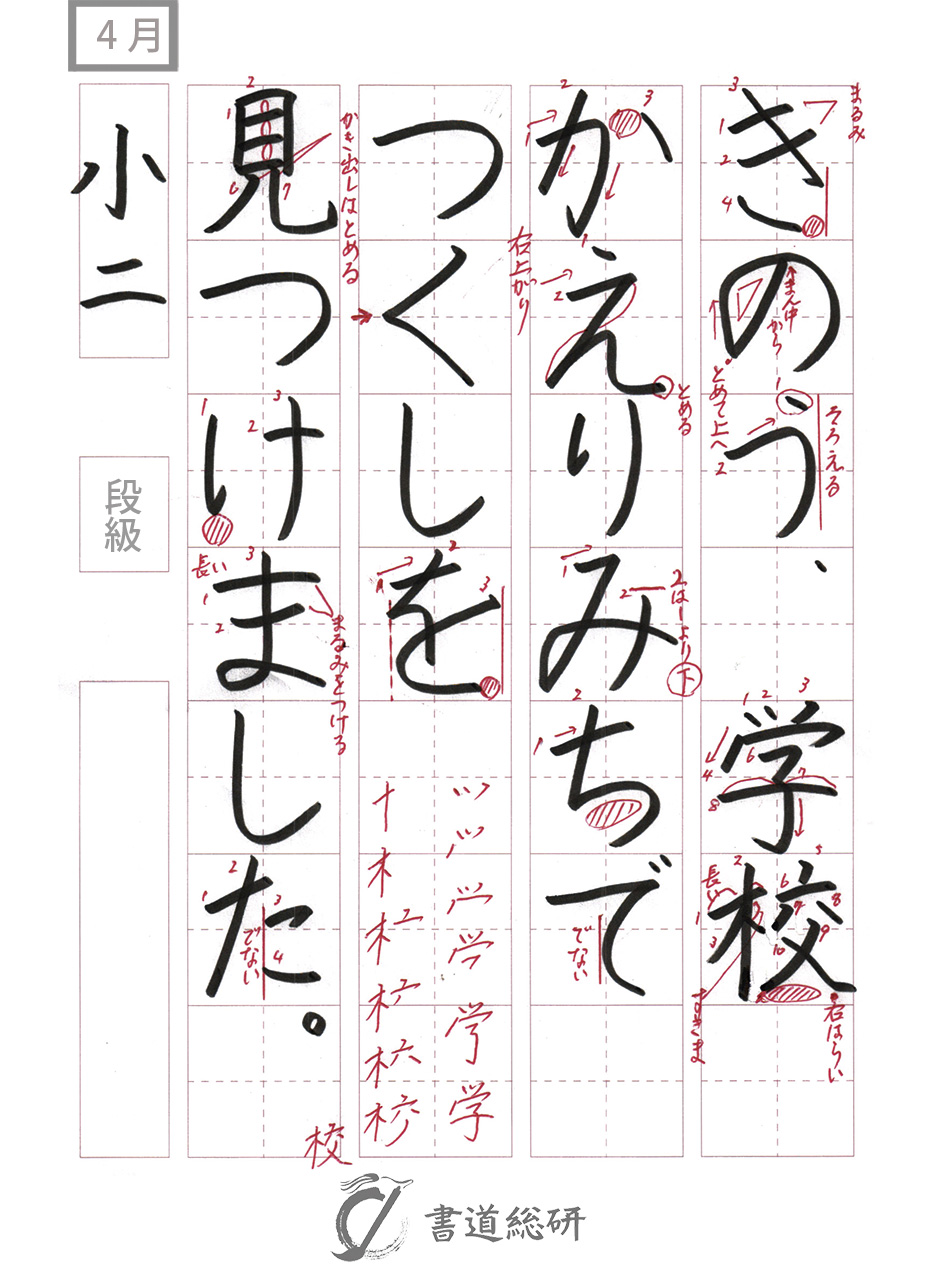 4月
きのう、学校
かえりみちで
つくしを
見つけました。
小二
段級
まるみ
まん中から
とめて上へ
そろえる
長い
すきま
右はらい
右上がり
とめる
2はーより下
でない
かき出しはとめる
長い
まるみをつける
でない
学
校
書道総研